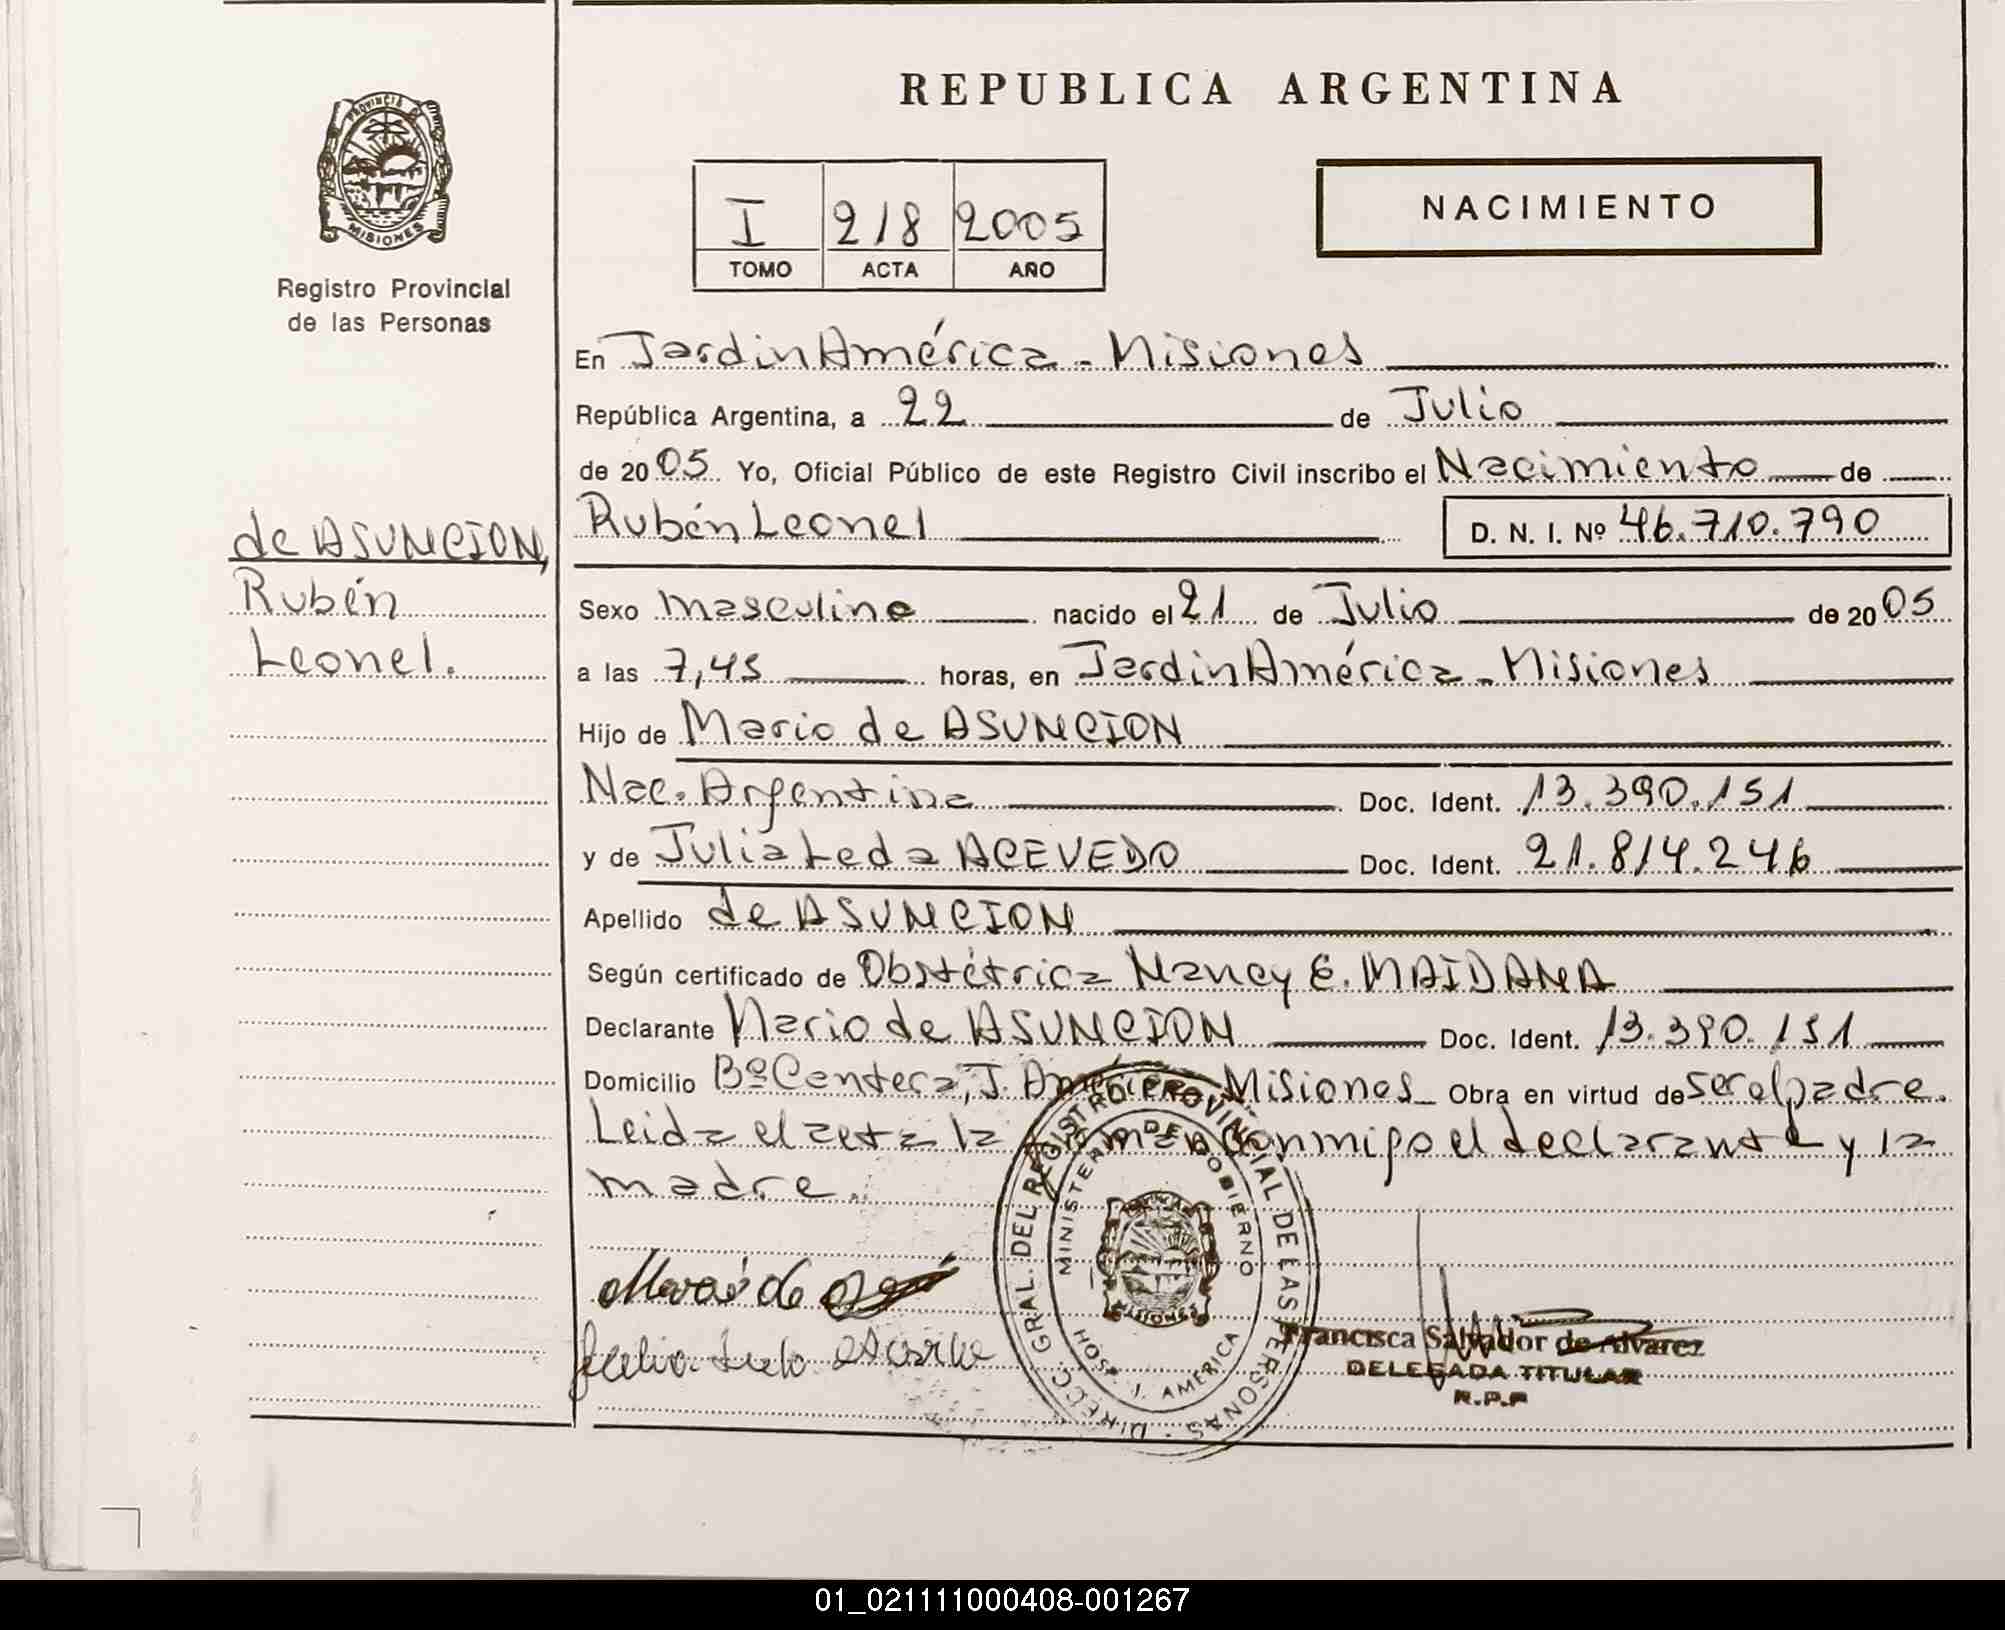 REPUBLICA ARGENTINA
PROVINCIA DE
MISIONES
Registro Provincial
de las Personas
I 218 2005
TOMO ACTA AÑO
NACIMIENTO
En Jardin América - Misiones
República Argentina, a 22 de Julio
de 2005 Yo, Oficial Público de este Registro Civil inscribo el Nacimiento de
Rubén Leonel D. N. I. Nº 46.710.790
de ASUNCION,
Rubén
Leonel.
Sexo masculino nacido el 21 de Julio de 2005
a las 7,45 horas, en Jardin América - Misiones
Hijo de Mario de ASUNCION
Nac. Argentina Doc. Ident. 13.390.151
y de Julia Leda ACEVEDO Doc. Ident. 21.814.246
Apellido de ASUNCION
Según certificado de Obstétrica Nancy E. MAIDANA
Declarante Mario de ASUNCION Doc. Ident. 13.390.151
Domicilio Bº Centera, J. América - Misiones - Obra en virtud de ser el padre.
Leida el acta la firman conmigo el declarante y la
madre.
DIRECC. GRAL. DEL REGISTRO PROVINCIAL DE LAS PERSONAS
MINISTERIO DE GOBIERNO
MISIONES
HOSP. J. AMERICA
Francisca Salvador de Alvarez
DELEGADA TITULAR
R.P.P
01_021111000408-001267